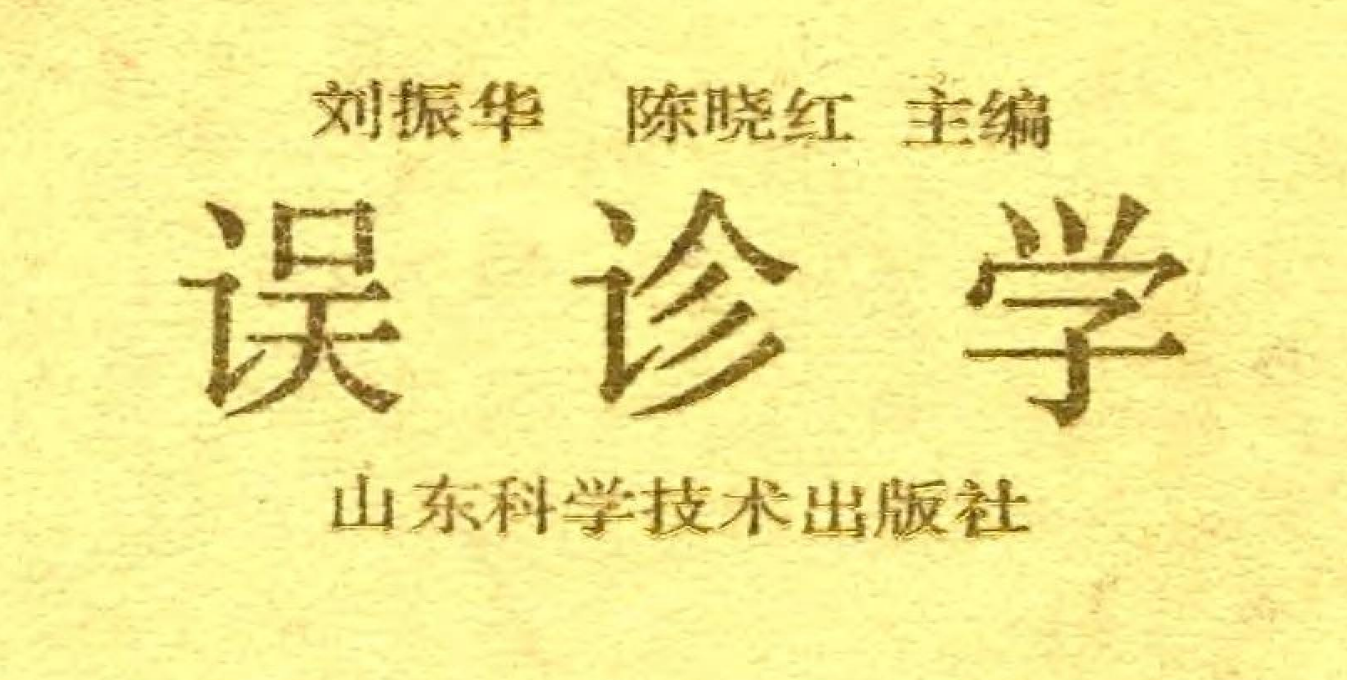 刘振华 陈晓红 主编
误诊学
山东科学技术出版社